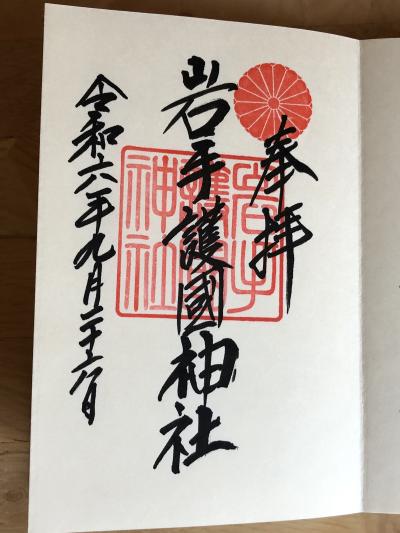 奉拝
岩手護國神社
岩手護國神社
令和六年九月二十六日